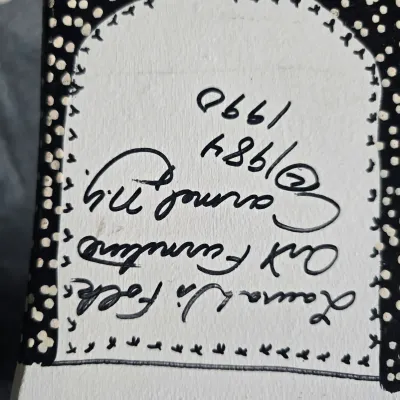 Laura Folk
Art Furniture
Carmel N.Y.
© 1984
1990